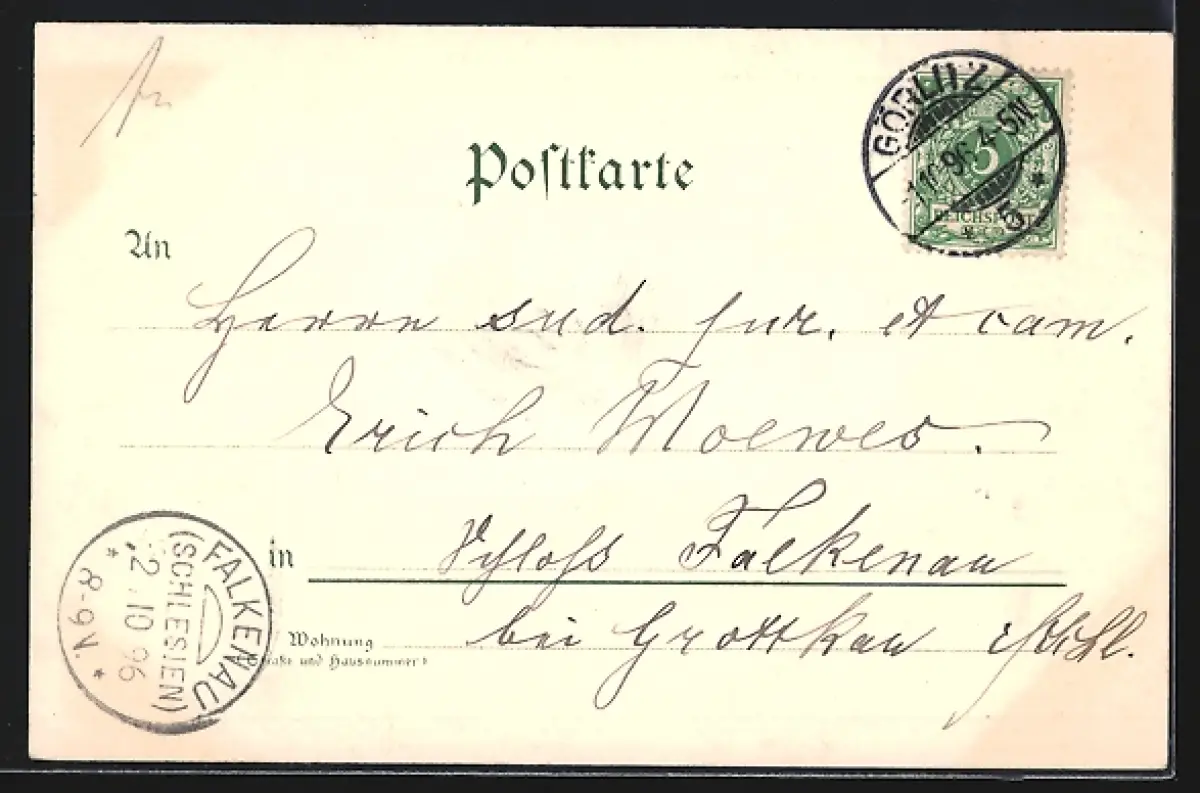 Postkarte
GÖRLITZ
1.10.96.4-5N.
5
5
REICHSPOST
An
Herrn stud. jur. et cam.
Erich Moewes.
in Schloss Falkenau
Wohnung bei Grottkau
(Straße und Hausnummer)
FALKENAU
(SCHLESIEN)
2.10.96
8-9N.